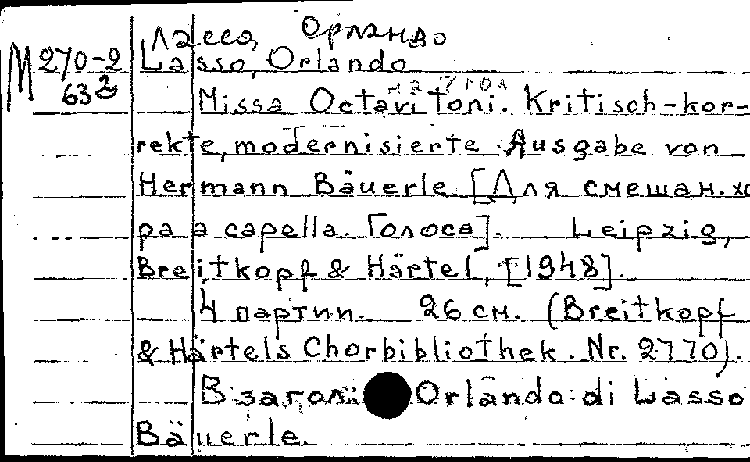 Лассо, Орландо
М 270-2 Lasso, Orlando
63 2
Missa Octavi Toni. Kritisch-kor-
rekte, modernisierte Ausgabe von
Hermann Bäuerle. [Для смешан. хо
ра a capella. Голоса]. Leipzig,
Breitkopf & Härtel, [1948].
4 партии. 26 см. (Breitkopf
& Härtels Chorbibliothek. Nr. 2770).
В загол. Orlando di Lasso
Bäuerle.